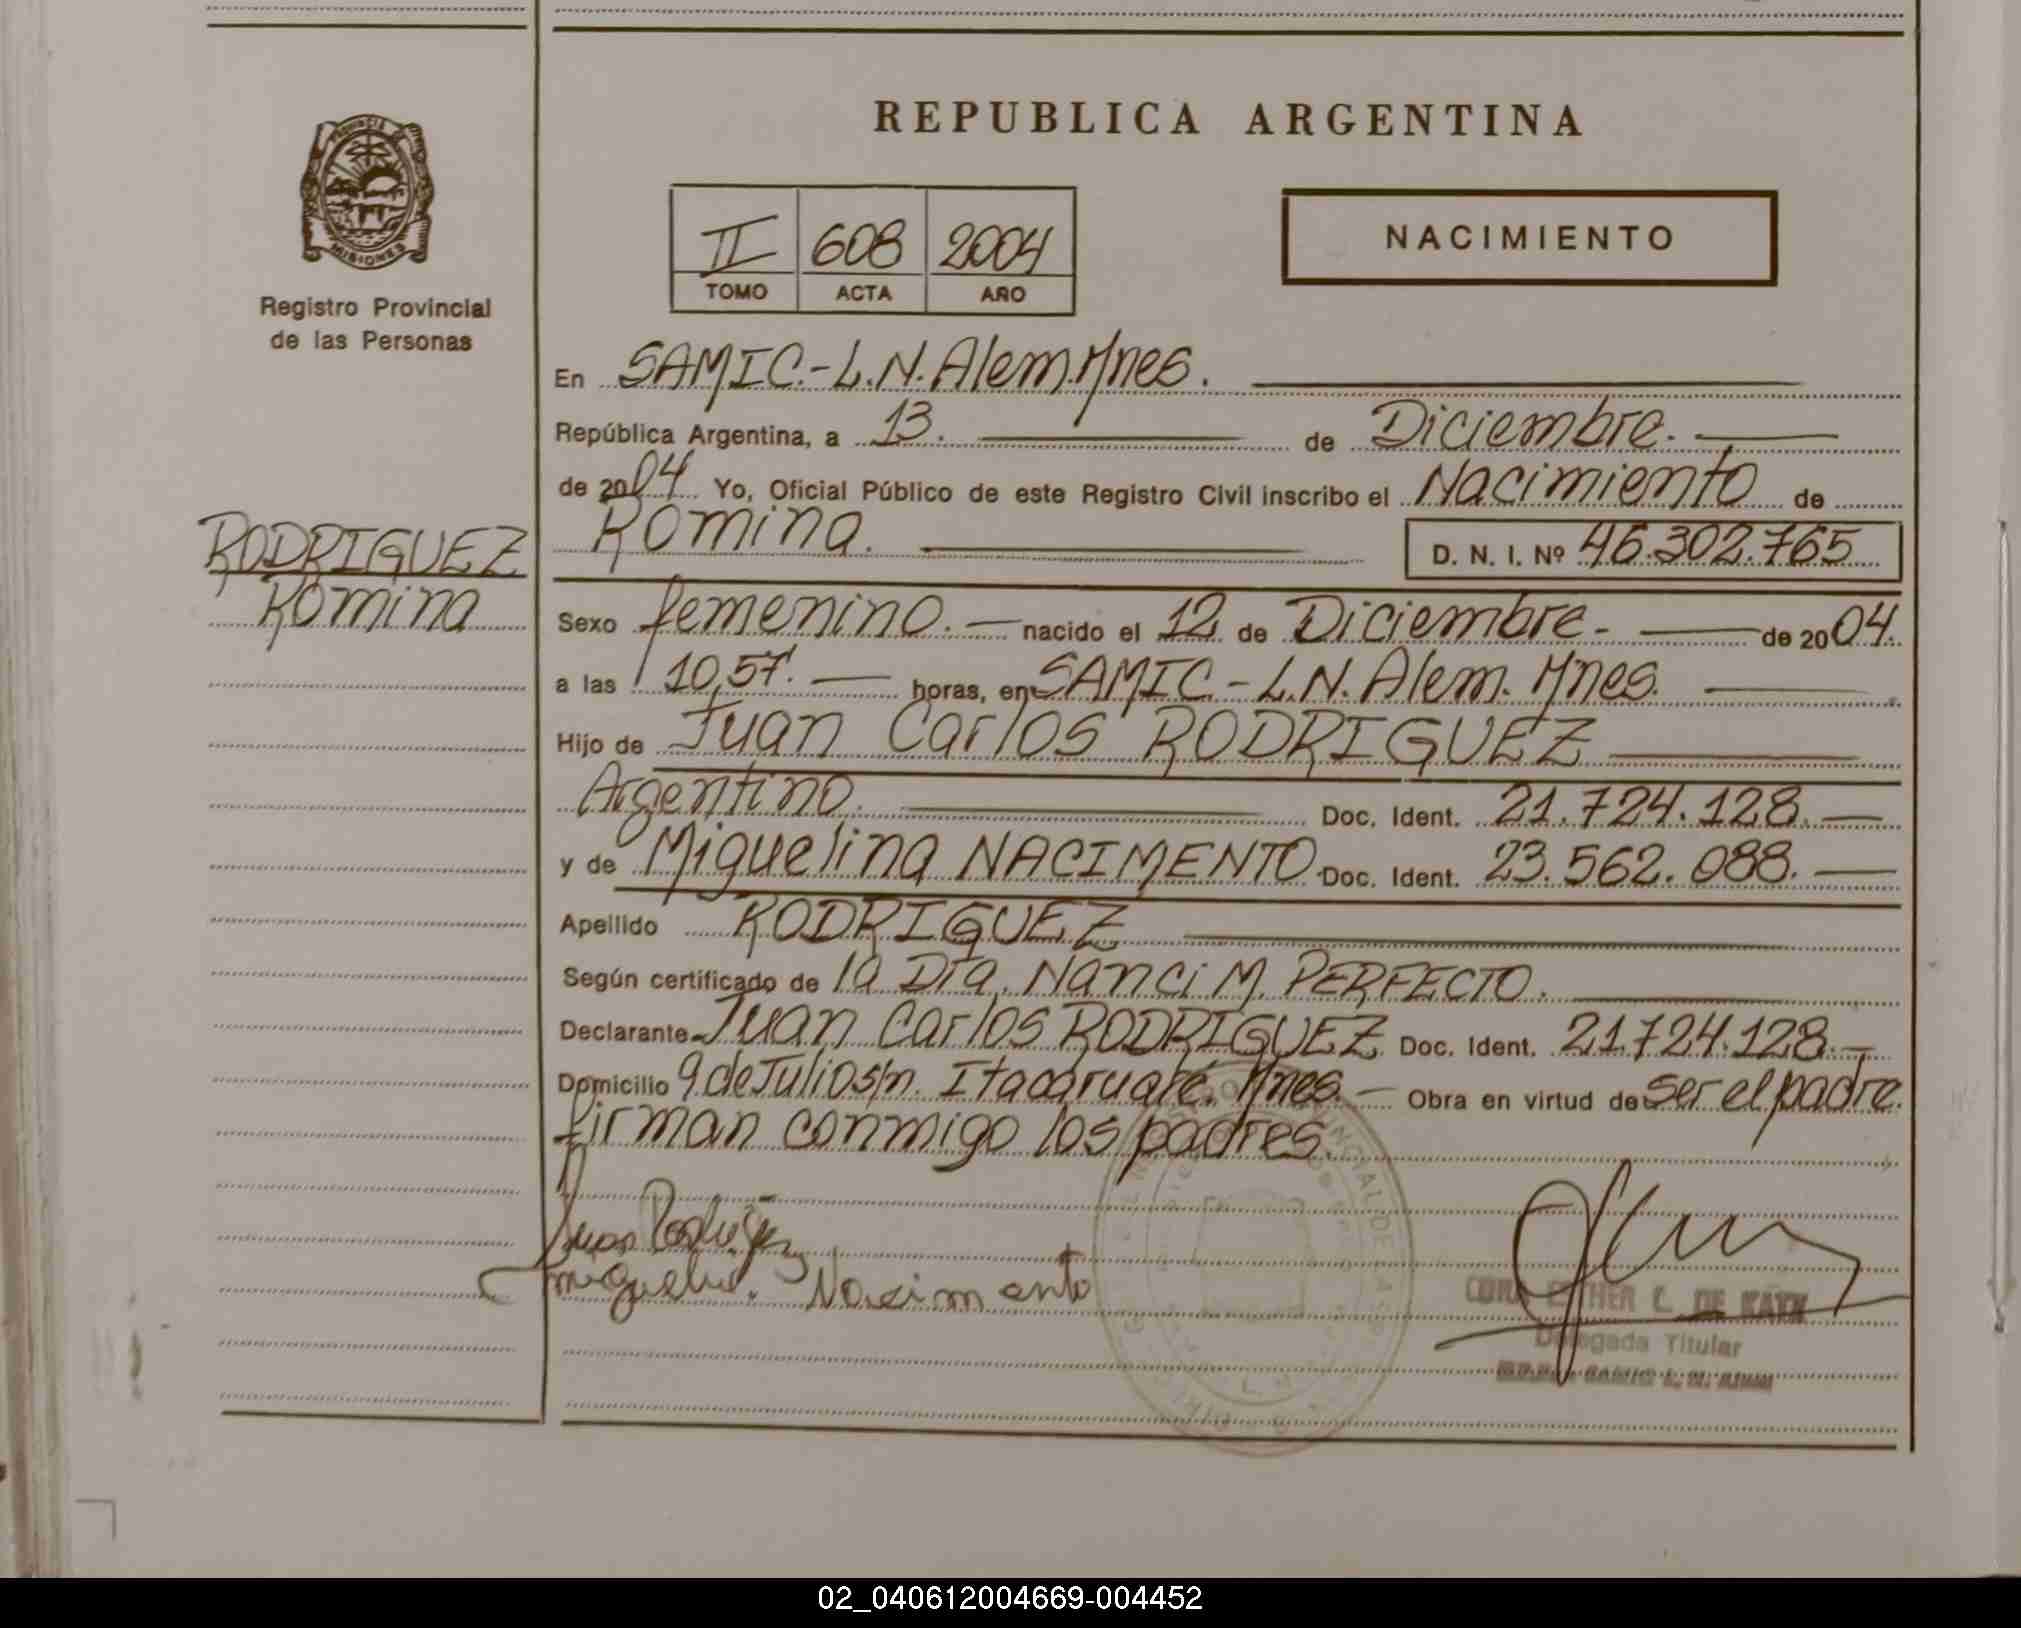 REPUBLICA ARGENTINA
PROVINCIA DE
MISIONES
Registro Provincial
de las Personas
II 608 2004
TOMO ACTA AÑO
NACIMIENTO
En SAMIC.-L.N.Alem.Mnes.
República Argentina, a 13. de Diciembre.
de 2004 Yo, Oficial Público de este Registro Civil inscribo el Nacimiento de
Romina. D. N. I. Nº 46.302.765
RODRIGUEZ
Romina
Sexo femenino. nacido el 12 de Diciembre- de 2004.
a las 10,57. horas, en SAMIC-L.N. Alem. Mnes.
Hijo de Juan Carlos RODRIGUEZ
Argentino. Doc. Ident. 21.724.128.
y de Miguelina NACIMENTO. Doc. Ident. 23.562.088.
Apellido RODRIGUEZ
Según certificado de la Dra. Nanci M. PERFECTO.
Declarante Juan Carlos RODRIGUEZ Doc. Ident. 21.724.128.-
Domicilio 9 de Julio s/n. Itacaruaré. Mnes.- Obra en virtud de ser el padre.
firman conmigo los padres.
Juan Rodriguez
Nacimento
ESTHER L. DE
Delegada Titular
SAMIC L. N. ALEM
02_040612004669-004452